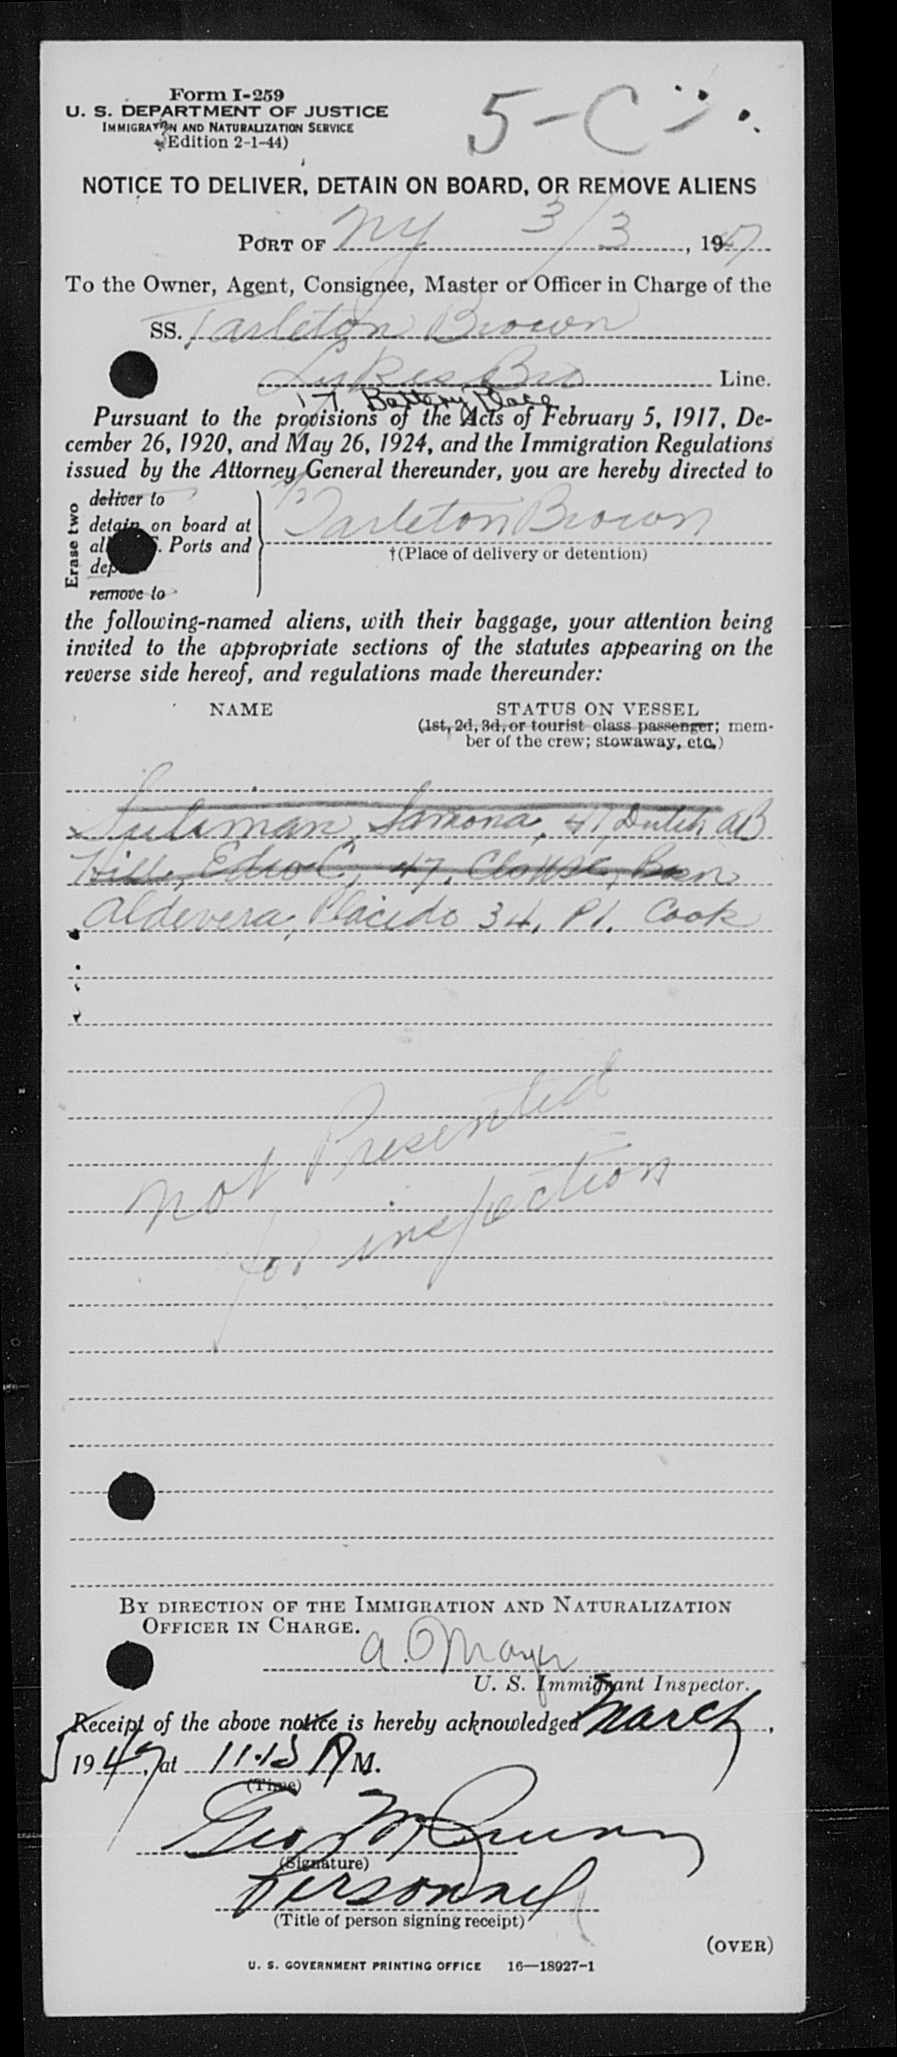 Form I-259
U. S. DEPARTMENT OF JUSTICE
IMMIGRATION AND NATURALIZATION SERVICE
(Edition 2-1-44)
5-C
NOTICE TO DELIVER, DETAIN ON BOARD, OR REMOVE ALIENS
PORT OF NY 3/3, 1947
To the Owner, Agent, Consignee, Master or Officer in Charge of the
SS. Tarleton Brown
Lykes Bro Line.
17 Battery Place
Pursuant to the provisions of the Acts of February 5, 1917, De-
cember 26, 1920, and May 26, 1924, and the Immigration Regulations
issued by the Attorney General thereunder, you are hereby directed to
Erase two
deliver to
detain on board at
Ports and
remove to
Tarleton Brown
†(Place of delivery or detention)
the following-named aliens, with their baggage, your attention being
invited to the appropriate sections of the statutes appearing on the
reverse side hereof, and regulations made thereunder:
NAME STATUS ON VESSEL
(1st, 2d, 3d, or tourist class passenger; mem-
ber of the crew; stowaway, etc.)
47, Dutch AB
47,
Aldevera, Placido 34, P.I. Cook
not Presented
for inspection
BY DIRECTION OF THE IMMIGRATION AND NATURALIZATION
OFFICER IN CHARGE.
U. S. Immigrant Inspector.
Receipt of the above notice is hereby acknowledged March,
1947, at 11.15 A M.
(Time)
Geo
(Signature)
Personnel
(Title of person signing receipt)
(OVER)
U. S. GOVERNMENT PRINTING OFFICE 16—18927-1